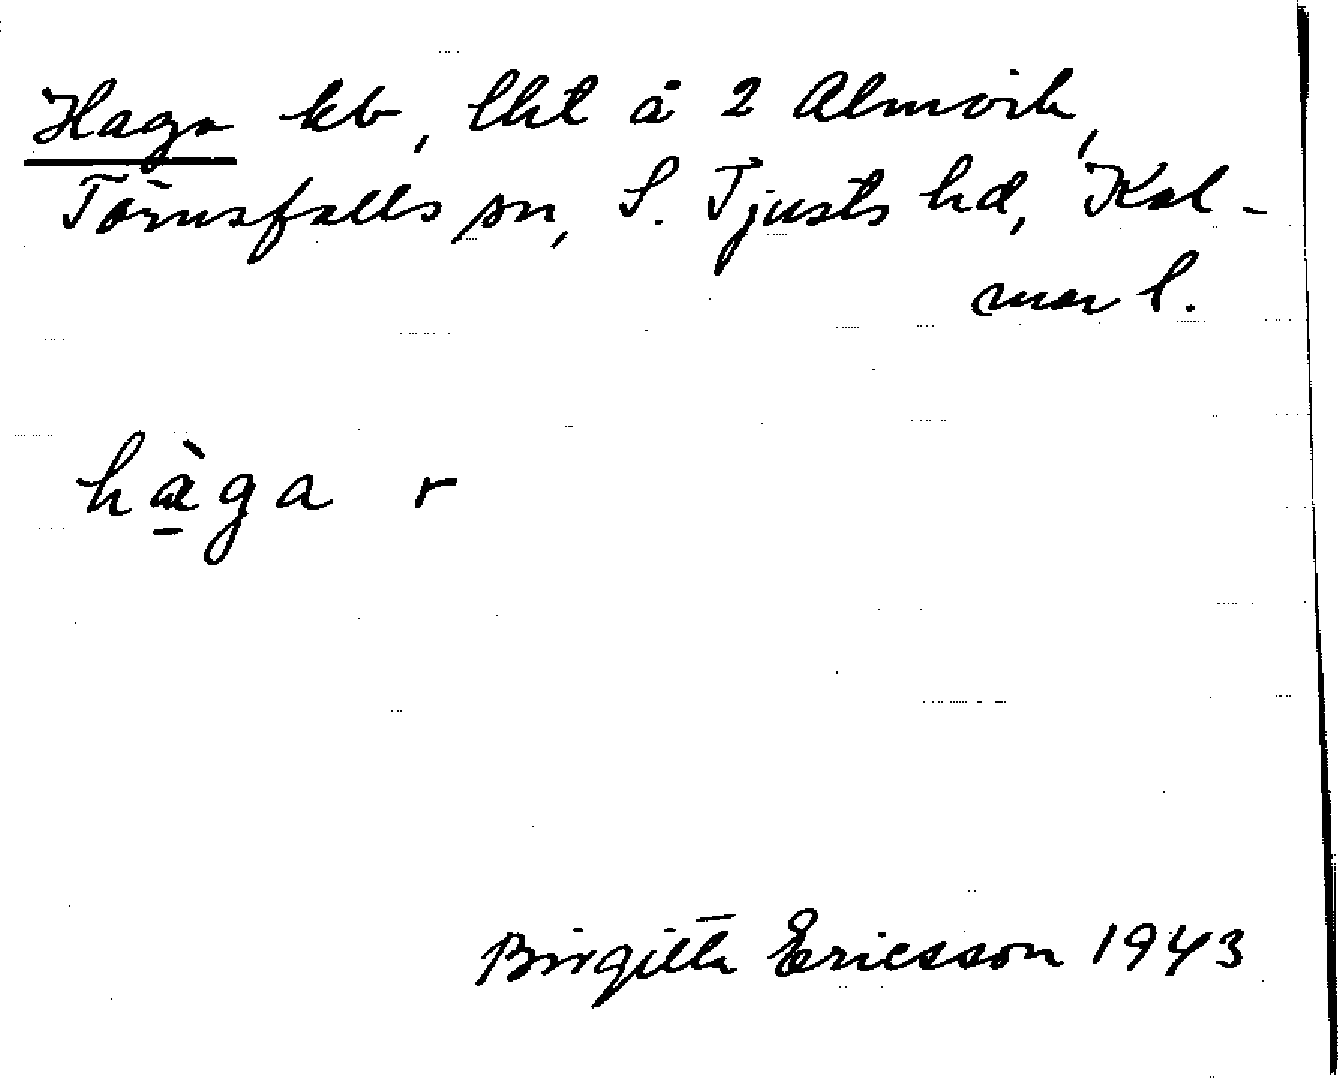 Haga kb, lht å 2 Almvik,
Törnsfalls sn, S. Tjusts hd, Kal-
mar l.
hàga r
Birgitta Ericsson 1943